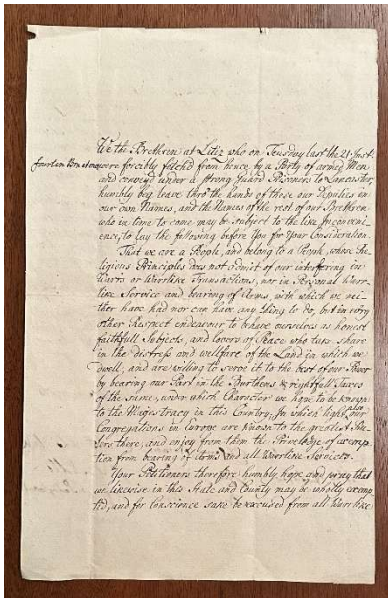 We the Brethren at Litiz who on Tuesday last the 21 Inst.
fourteen were forcibly fetch'd from hence by a Party of armed Men
and convey'd under a strong Guard Prisoners to Lancaster,
humbly beg leave thro the hands of these our Deputies in
our own Names, and the Names of the rest of our Brethren
who in time to come may be subject to the like inconveni-
ence, to lay the following before You for Your Consideration.
That we are a People, and belong to a People, whose Re-
ligious Principles does not admit of our interfering in
Warrs or Warlike Transactions, nor in Personal Warr-
like Service and bearing of Arms, with which we nei-
ther have had nor can have any thing to do, but in every
other Respect endeavour to behave ourselves as honest
faithfull Subjects, and lovers of Peace who take share
in the distress and wellfare of the Land in which we
dwell, and are willing to serve it to the best of our Power
by bearing our Part in the Burthens & rightfull Taxes
of the same, under which Character we hope to be known
to the Magistracy in this Country, in which light also our
Congregations in Europe are known to the greatest
there, and enjoy from them the Priviledge of exemp-
tion from bearing of Arms and all Warlike Services.
Your Petitioners therefore humbly hope and pray that
we likewise in this State and County may be wholly exemp-
ted, and for Conscience sake be excused from all Warrlike